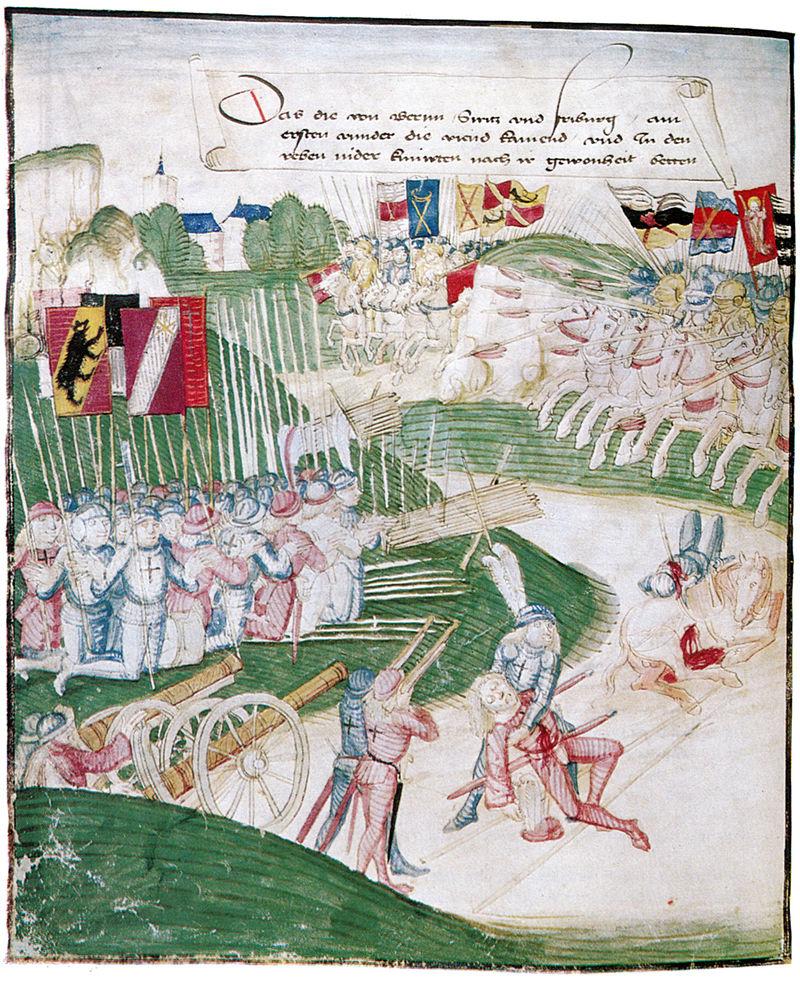 Das die von Bernn / Switz vnd friburg / am
ersten wunder die viend kamend / vnd In den
reben nider knüwten nach ir gewonheit betten